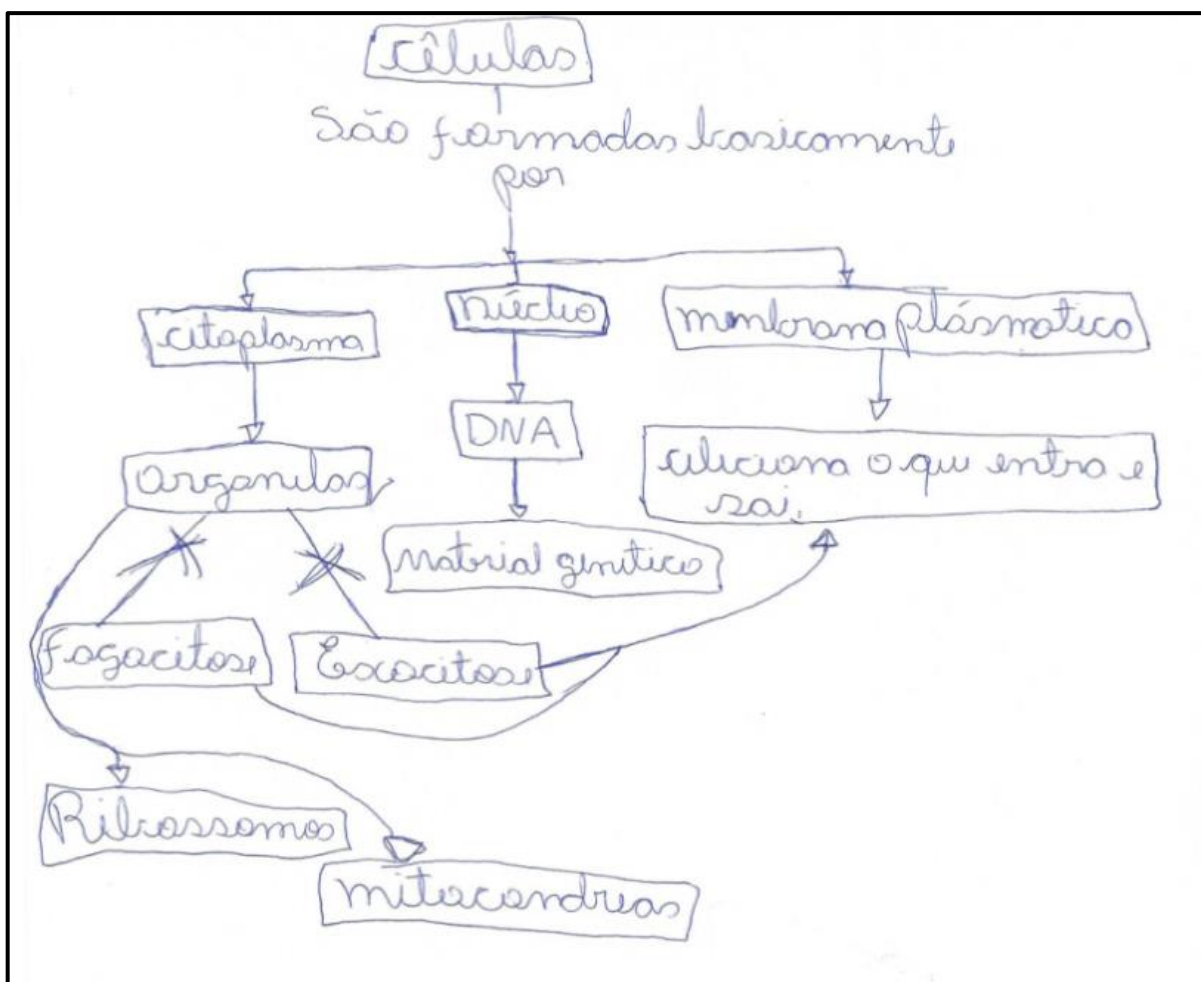 Cêlulas
São formadas basicamente
por
citoplasma
núcleo
membrana plásmatica
organelas
DNA
celeciona o que entra e
sai.
Material genetico
fagocitose
Exocitose
Ribossomos
mitocondreas